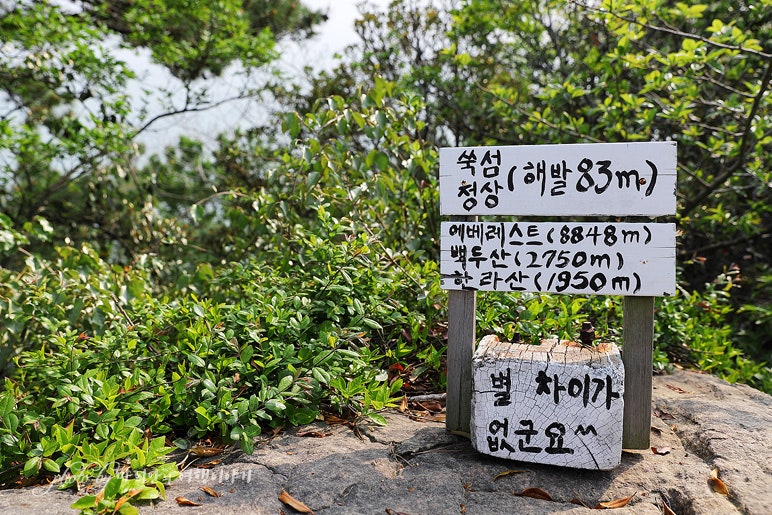 쑥섬
청상 (해발 83m.)
에베레스트 (8848m)
백두산 (2750m)
한라산 (1950m)
별 차이가
없군요^^